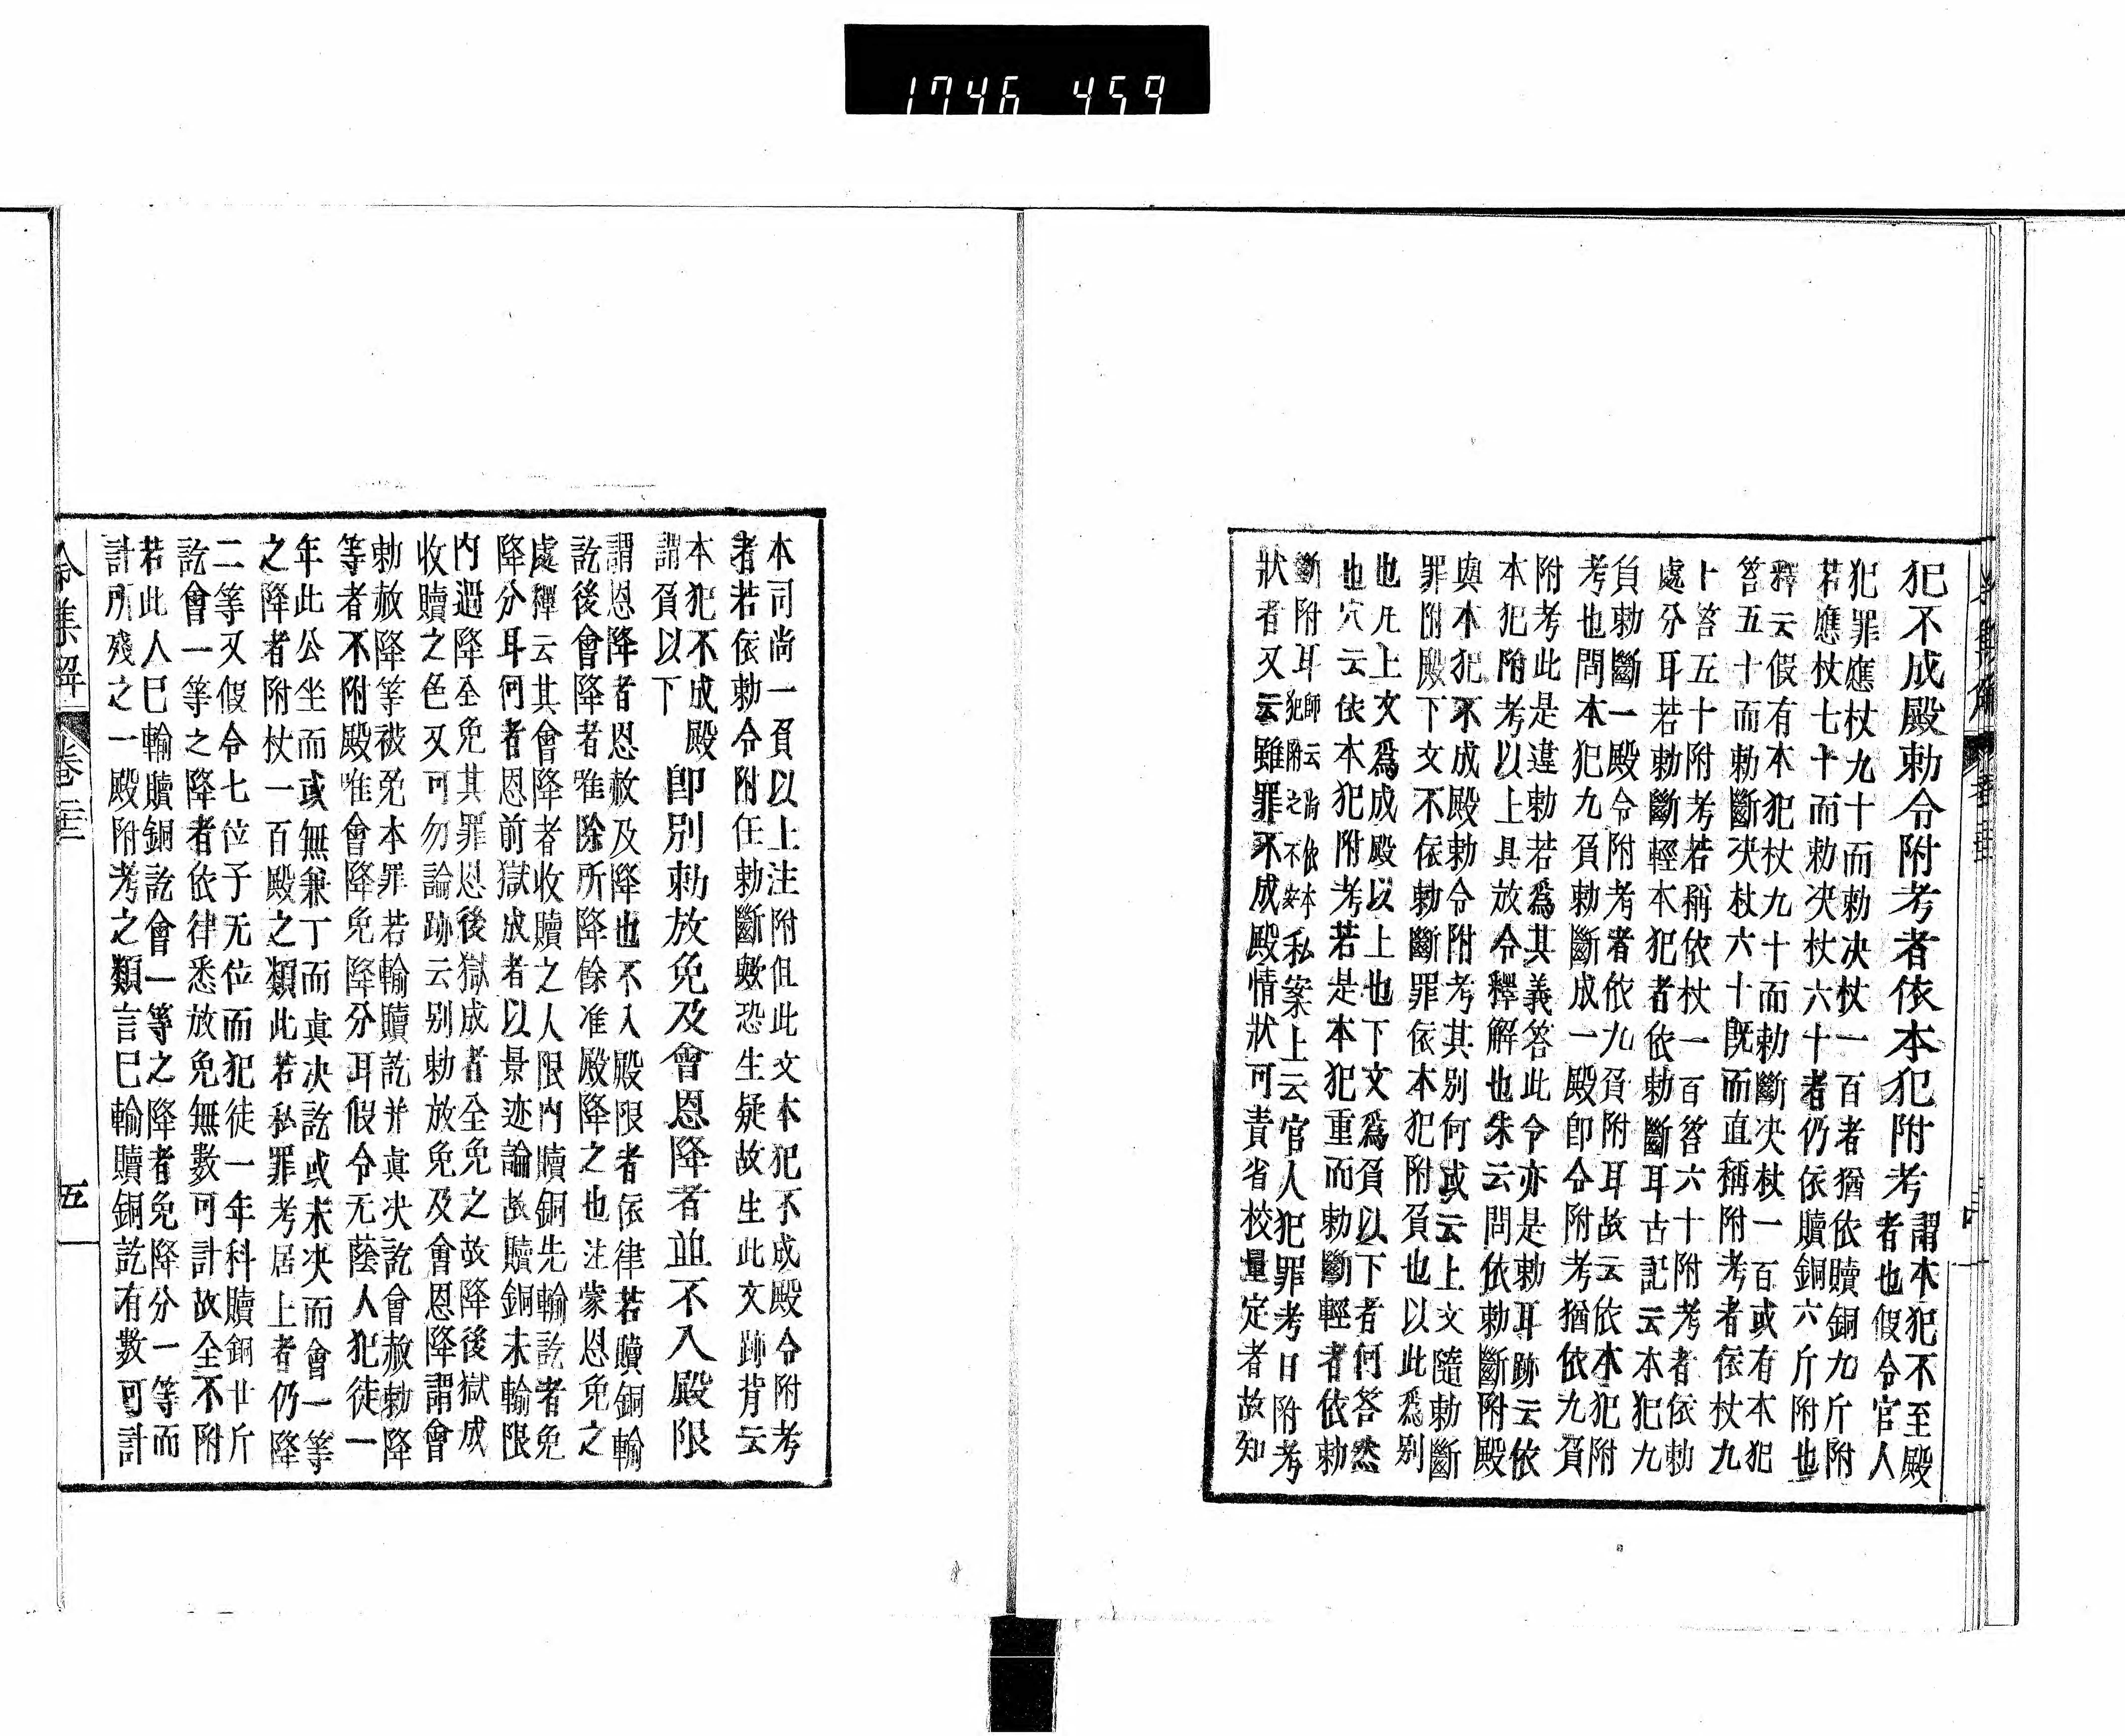 1746 459
犯不成殿勅令附考者依本犯附考
謂本犯不至殿
者也假令官人
犯罪應杖九十而勅决杖一百者猶依贖銅九斤附
若應杖七十而勅决杖六十者仍依贖銅六斤附也
釋云假有本犯杖九十而勅斷决杖一百或有本犯
笞五十而勅斷决杖六十既而直稱附考者依杖九
十笞五十附考若稱依杖一百笞六十附考者依勅
處分耳若勅斷輕本犯者依勅斷耳古記云本犯九
負勅斷一殿令附考者依九負附耳故云依本犯附
考也問本犯九負勅斷成一殿即令附考猶依九負
附考此是違勅若爲其義答此令亦是勅耳跡云依
本犯附考以上具放令釋解也朱云問依勅斷附殿
與本犯不成殿勅令附考其別何或云上文隨勅斷
罪附殿下文不依勅斷罪依本犯附負也以此爲別
也凡上文爲成殿以上也下文爲負以下者何答然
也穴云依本犯附考若是本犯重而勅斷輕者依勅
斷附耳
師云尚依本
犯附之不安
私案上云官人犯罪考日附考
狀者又云雖罪不成殿情狀可責省校量定者故知
本司尚一負以上注附但此文本犯不成殿令附考
者若依勅令附任勅斷歟恐生疑故生此文跡背云
本犯不成殿
謂負以下
即別勅放免及會恩降者並不入殿限
謂恩降者恩赦及降也不入殿限者依律若贖銅輸
訖後會降者唯除所降餘准殿降之也注蒙恩免之
處釋云其會降者收贖之人限内贖銅先輸訖者免
降分耳何者恩前獄成者以景迹論故贖銅未輸限
内遇降全免其罪恩後獄成者全免之故降後獄成
收贖之色又可勿論跡云別勅放免及會恩降謂會
勅赦降等被免本罪若輸贖訖并眞决訖會赦勅降
等者不附殿唯會降免降分耳假令无蔭人犯徒一
年此公坐而或無兼丁而眞决訖或未决而會一等
之降者附杖一百殿之類此若私罪考居上者仍降
二等又假令七位子无位而犯徒一年科贖銅廿斤
訖會一等之降者依律悉放免無數可計故全不附
若此人巳輸贖銅訖會一等之降者免降分一等而
計所殘之一殿附考之類言巳輸贖銅訖有數可計
令集解
卷二十二
五